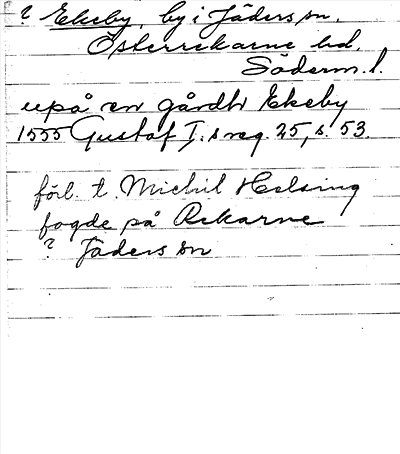 ? Ekeby, by i Jäders sn.
Österrekarne hd.
Söderm. l.
upå en gårdh Ekeby
1555 Gustaf I:s reg. 25, s. 53.
förl. t. Michil Helsing
fogde på Rekarne
? Jäders sn